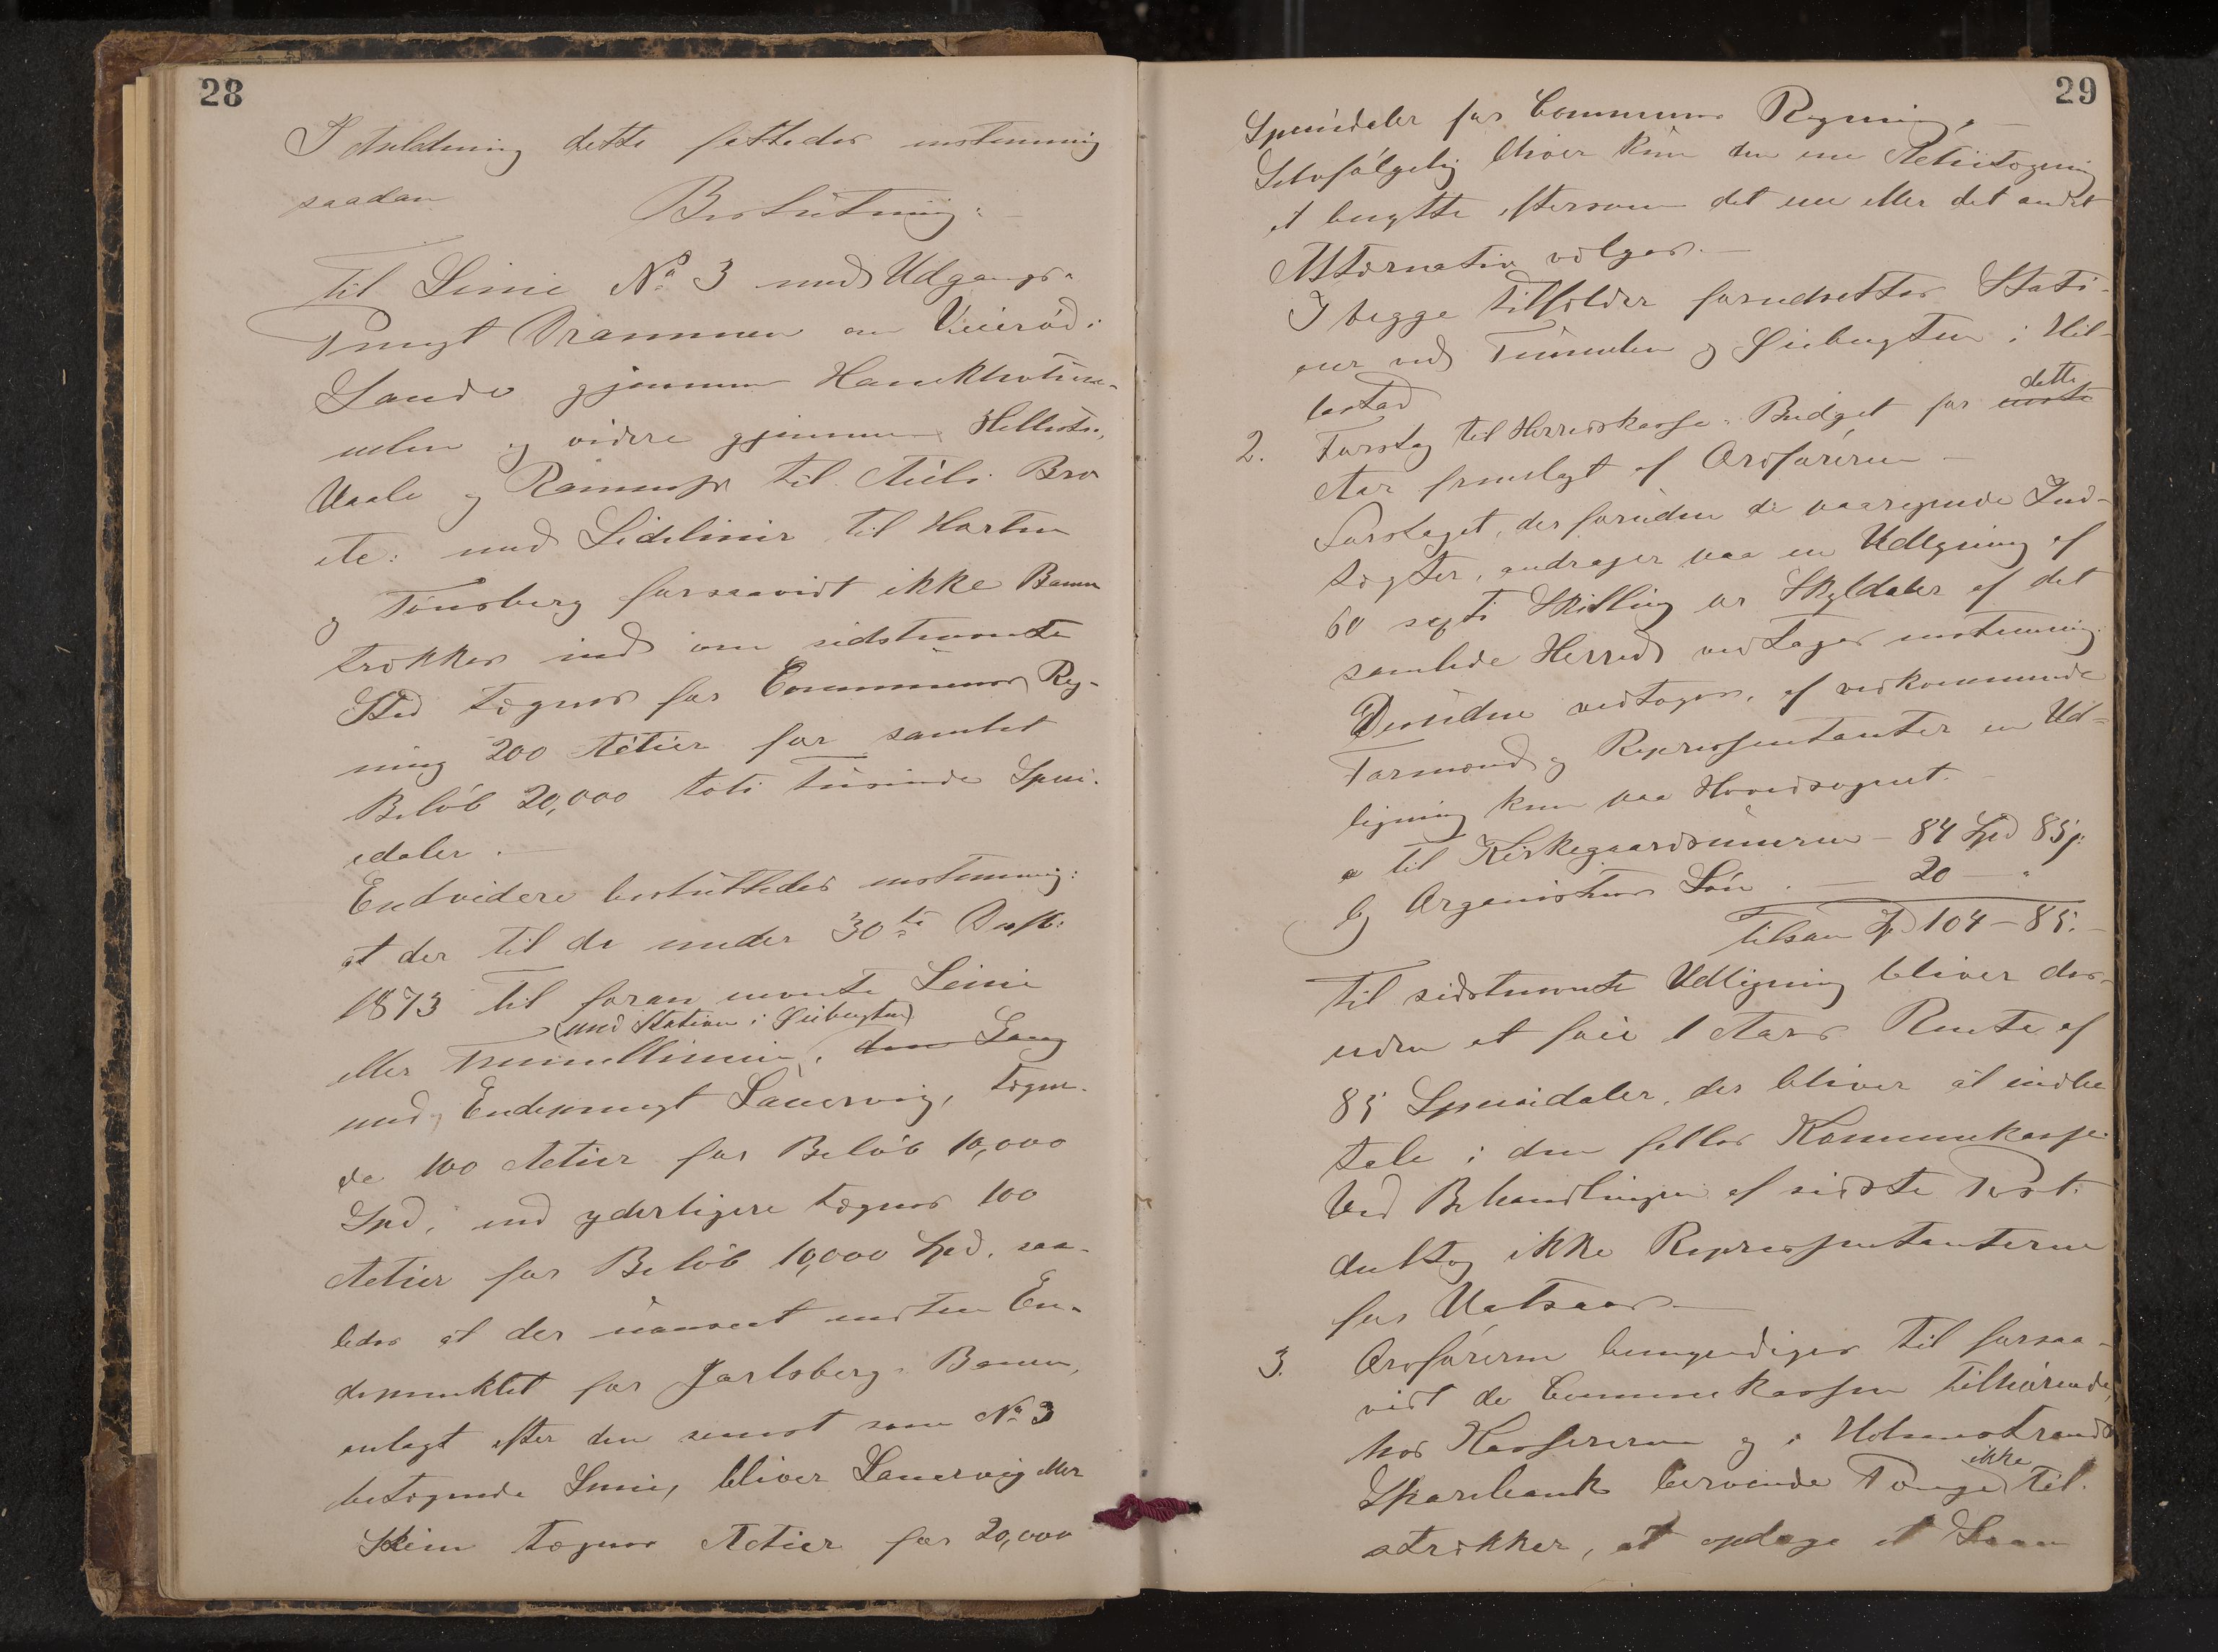 28
I Anledning dette fattedes enstemmig
saadan Beslutning:
Til Linie No 3 med Udgangs-
Punqt Drammen om Veierød i
Sande gjennem Hanekleivtun-
nelen og videre gjennem Hillestø,
Vaale og Ramnæs til Auli Bro
etc: med Sidelinier til Horten
og Tønsberg forsaavidt ikke Banen
trækkes ind om sidstnævnte
Sted tegnes for Communens Reg-
ning 200 Actier for samlet
Beløb 20,000 toti tusinde Speci-
edaler.
Endvidere besluttedes enstemmig:
at der til de under 30te
1873 til foran nævnte Linie
(med Station i Øiebugten)
eller Tunnellinien, den Gang
med Endepunqt Laurvig, tegne-
de 100 Actier for Beløb 10,000
Spd, end yderligere tegnes 100
Actier for Beløb 10,000 Spd, saa-
ledes at der uanseet enten En-
depunktet for Jarlsberg-Banen,
anlagt efter den senest som No 3
betegnede Linie, bliver Laurvig eller
Skien tegnes Actier for 20,000
29
Speciedaler for Communens Regning.
Selvfølgelig bliver kun den ene Actietegning
at benytte eftersom det ene eller det andet
Alternativ vælges.
I begge Tilfælder forudsættes Stati-
oner ved Tunnelen og Øiebugten i Hil-
lestad
dette
2. Forslag til Herredskasse-Budget for næste
Aar fremlagt af Ordføreren
Forslaget, der foruden de paaregnede Ind-
tægter, andrager paa en Udligning af
60 sexti Skilling pr Skylddaler af det
samlede Herred vedtages enstemmig.
Desuden vedtages, af vedkommende
Formænd og Repræsentanter en Ud-
ligning kun paa Hovedsognet.
a til Kirkegaardsmuren - 84 Spd 85ß.
b) Organistens Løn. — 20 — "
Tilsam Spd 104 - 85.
Til sidstnævnte Udligning bliver des-
uden at føie 1 Aars Rente af
85 Speciedaler, der bliver at indbe
tale i den fælles Kommunekasse
Ved Behandlingen af sidste Post.
deeltog ikke Repræsentanterne
for Vatsaas
3. Ordføreren bemyndiges til forsaa-
vidt de Communekassen tilhørende,
hos Kassereren og i Holmestrands
ikke
Sparebank beroende Penge til-
strækker, at optage et Laan